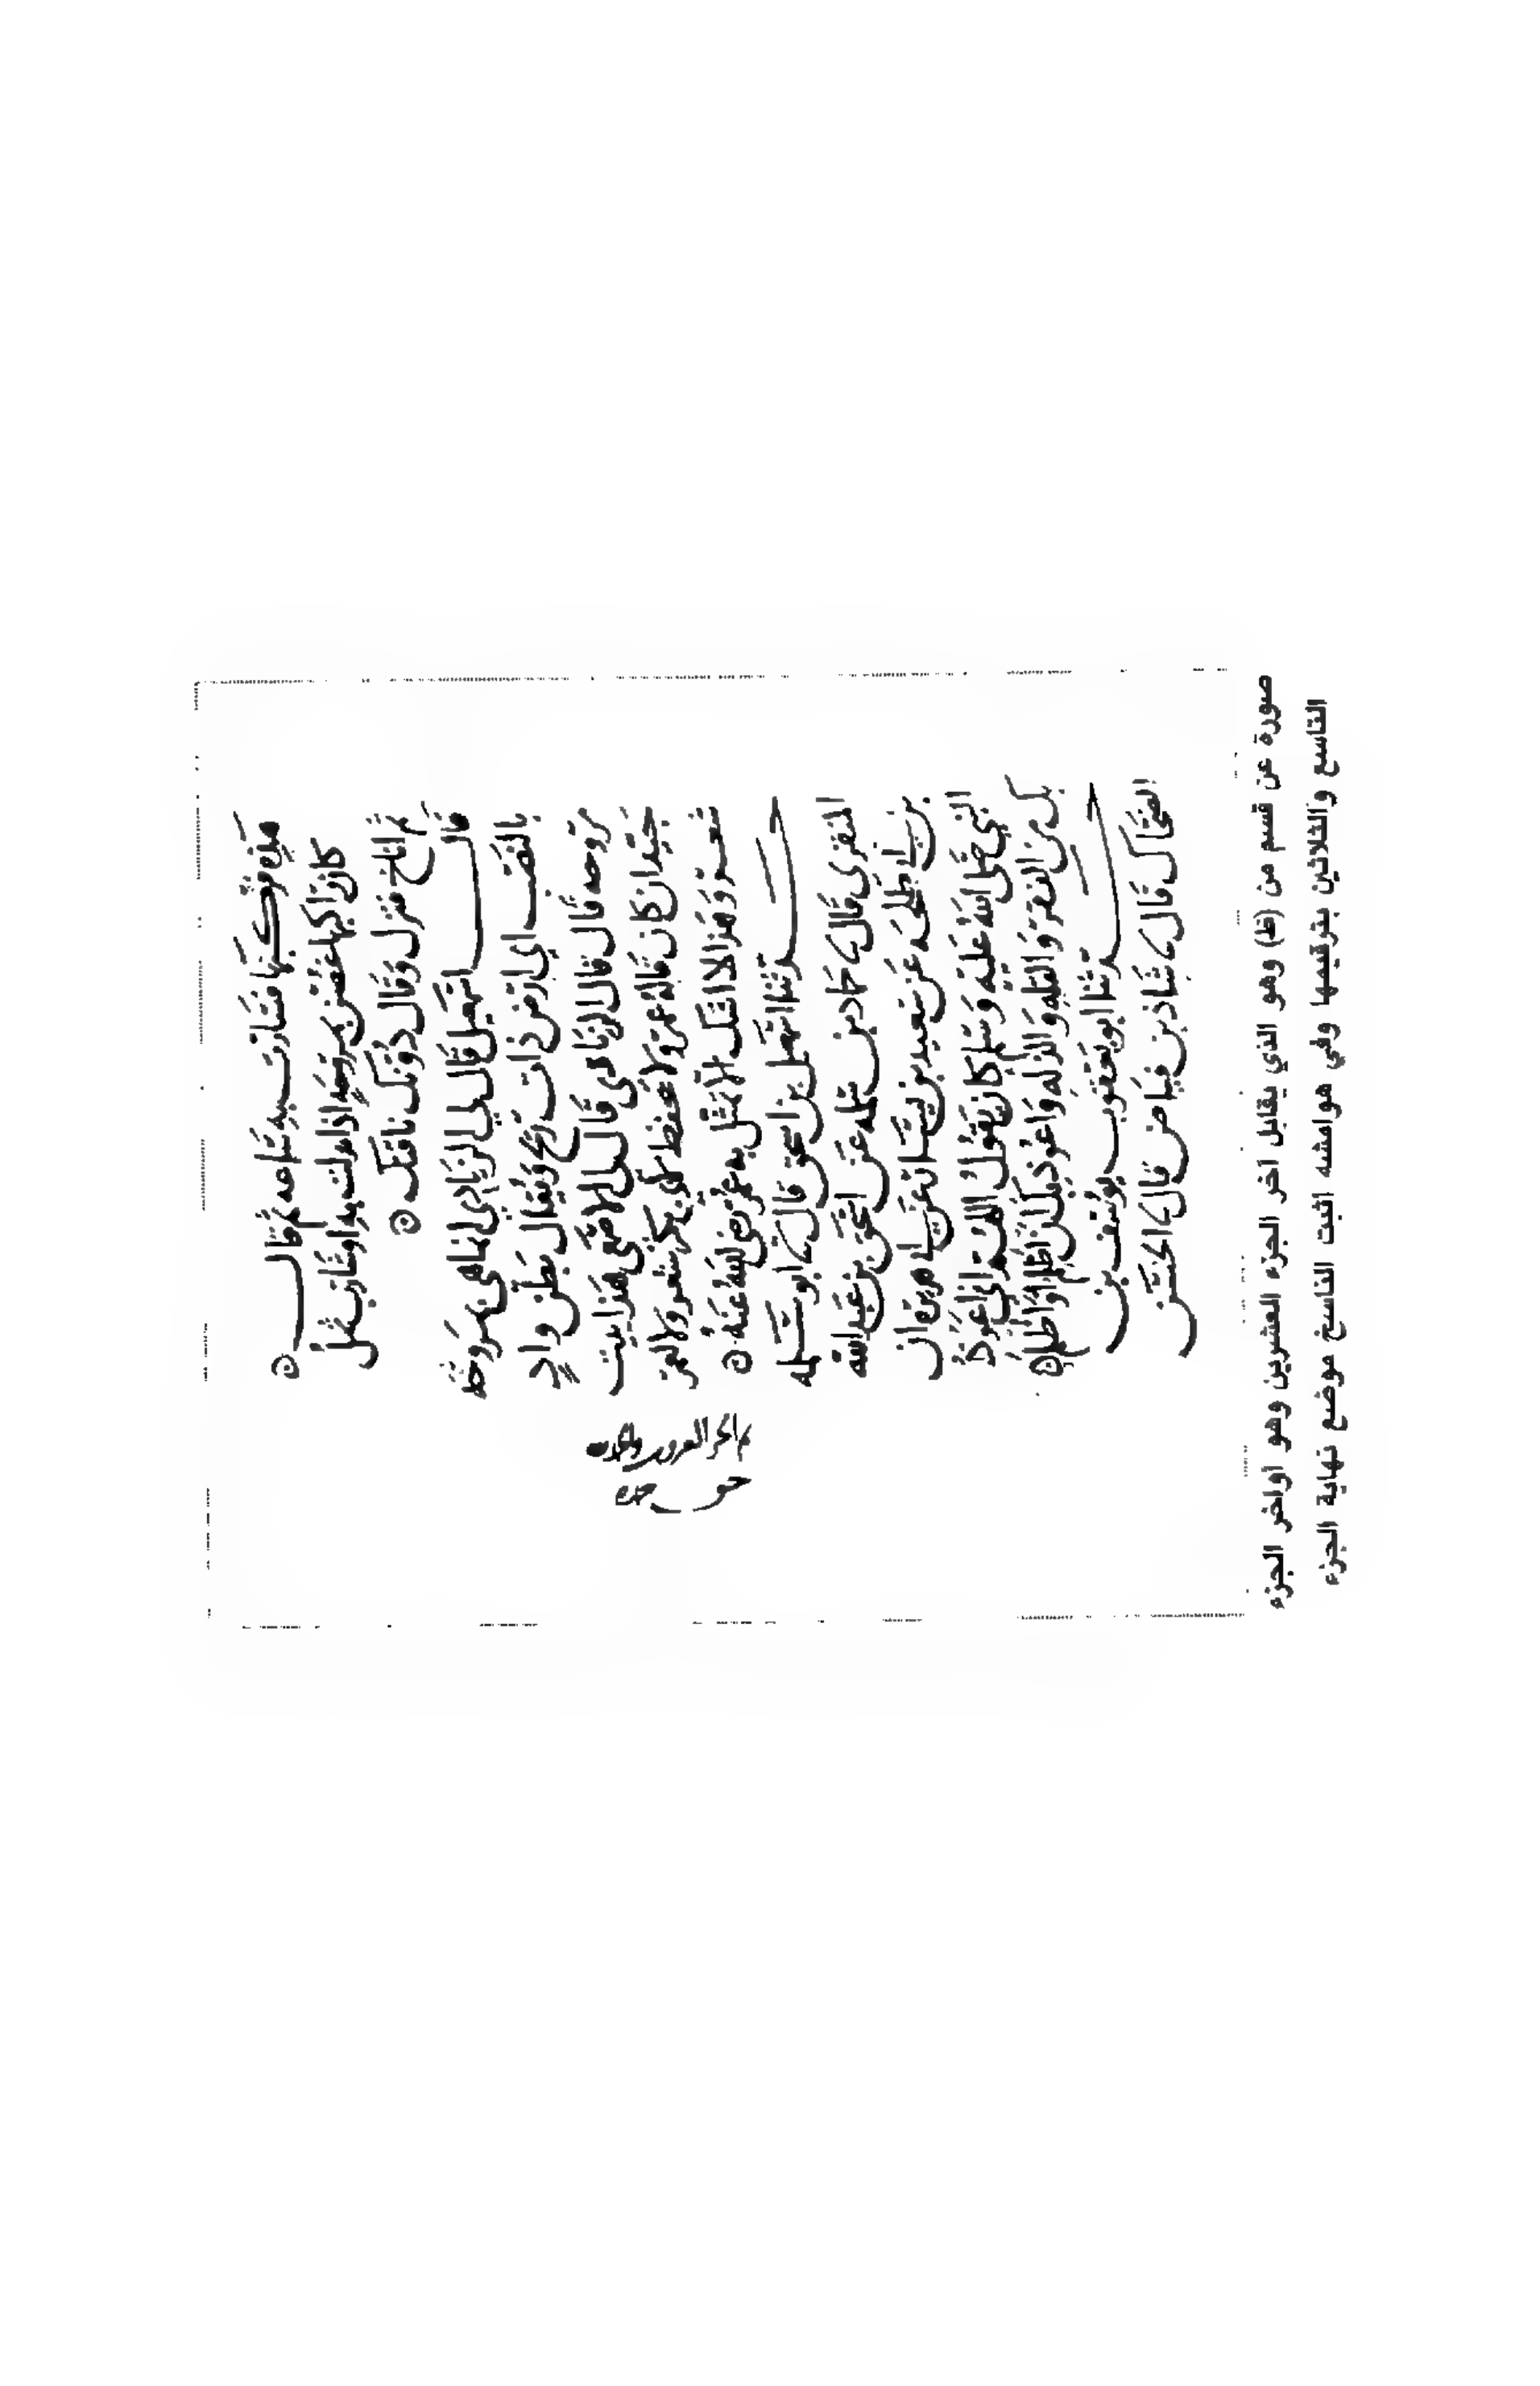 هذه فركبها فسارت به ساعه ثم قال
كان راكبها غصن بمروحة اذا تدلت به او شارب ثمل
ثم اناخ فنزل وقال دونك ناقتك
قال اسمعيل قال لي الزيادي انما هي بمروحة
بالفتح اي ارض ذات ريح ويقال بطن واد
مروحه قال قال الزيادي قال لي الاصمعي هذا بيت
جيد ان كان قاله عمر ولا يحفظ لابي بكر شعر ولا لعمر
شعر وهذا لا اشك الا تمثل به عمر رضي الله عنه
حدثنا اسمعيل بن اسحق قال نا ابو سلمه
المنقري قال نا حماد بن سلمه عن اسحق بن عبد الله
بن ابي طلحه عن سعيد بن يسار عن ابي هريرة ان
النبي صلى الله عليه وسلم كان يقول اللهم اني اعوذ
بك من الفقر والقله والذله واعوذ بك ان اظلم او اظلم
حدثنا ابو يعقوب يوسف بن
الضحاك قال نا شاذ بن فياض قال نا الحسن
صورة عن قسم من (ظ) وهو الذي يقابل آخر الجزء العشرين وهو اواخر الجزء
التاسع والثلاثين بترقيمها وفي هوامشه اثبت الناسخ موضع نهاية الجزء